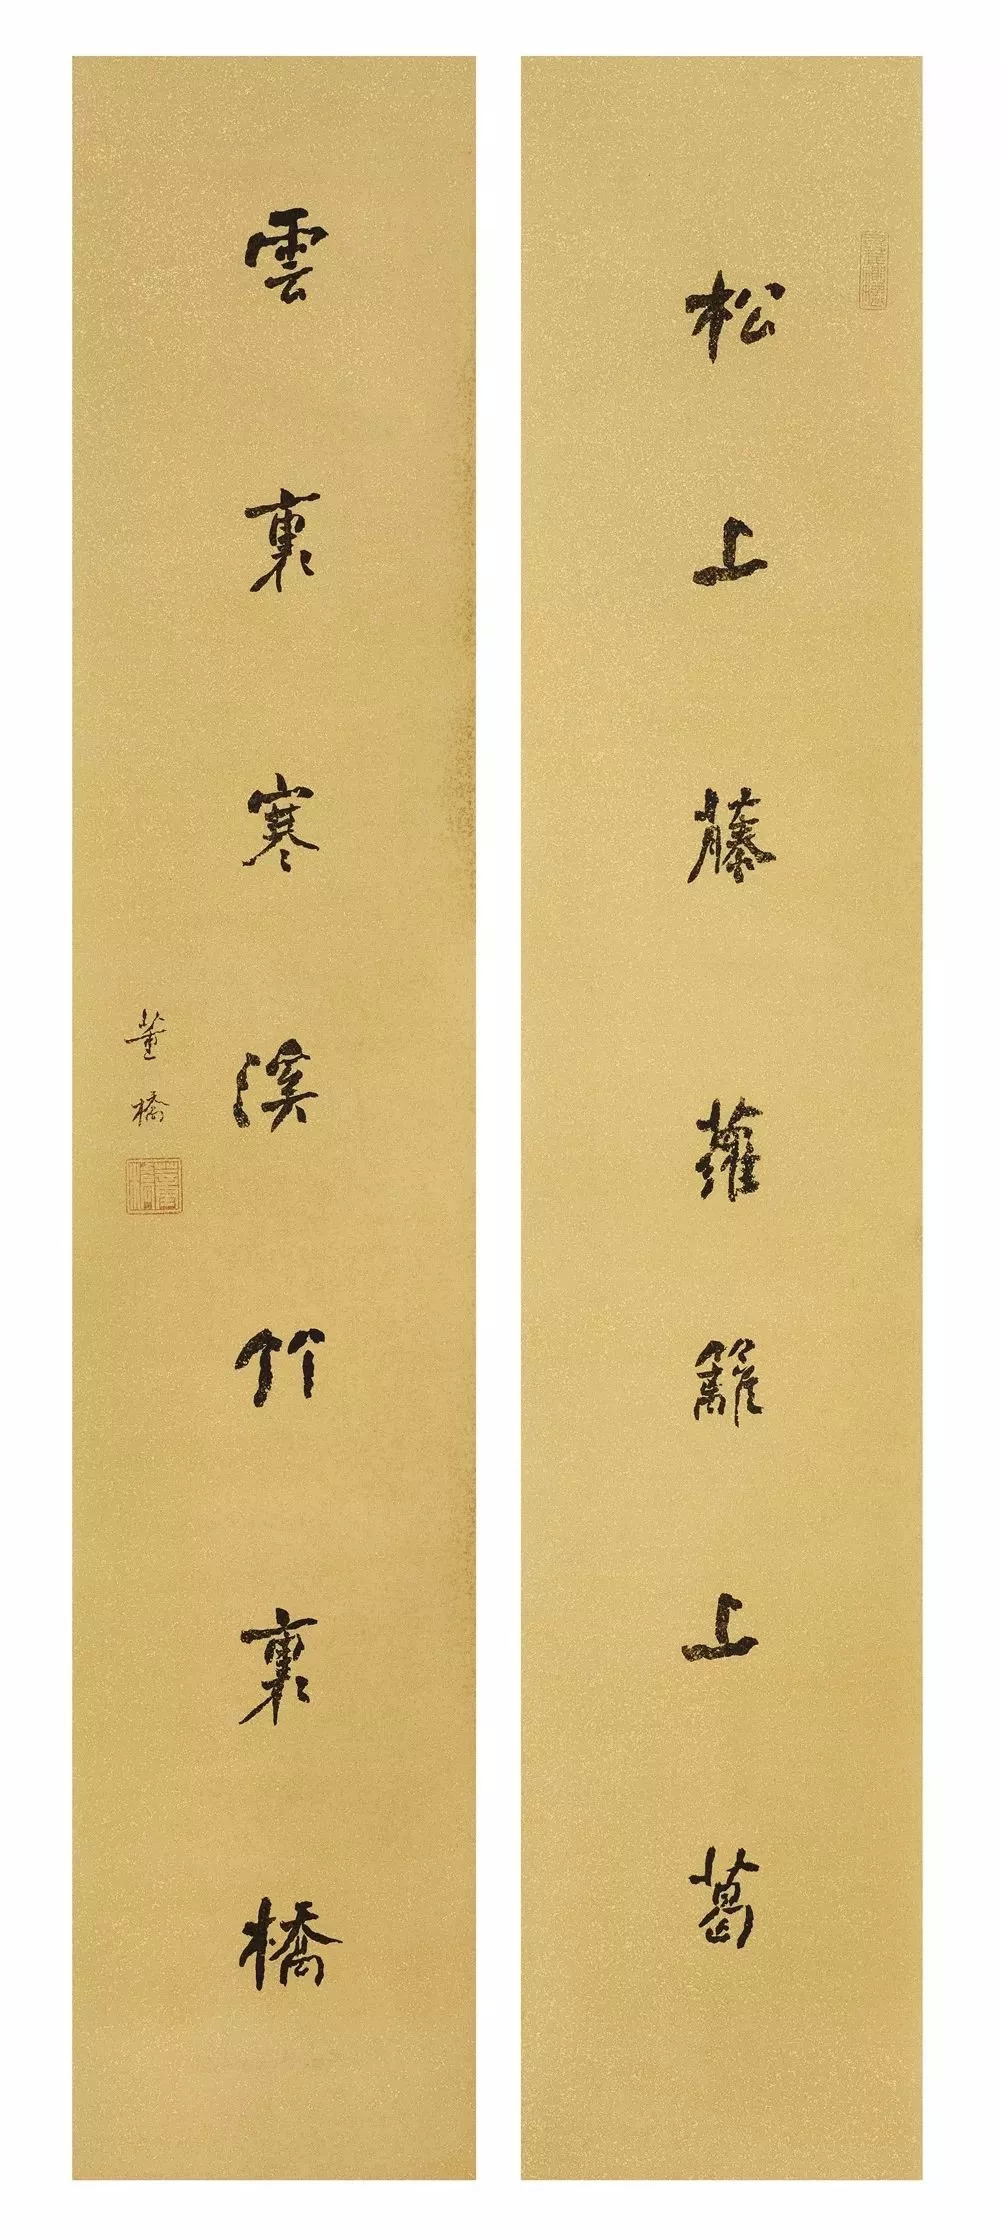 松上藤蘿籬上葛
雲裏寒溪竹裏橋
董橋